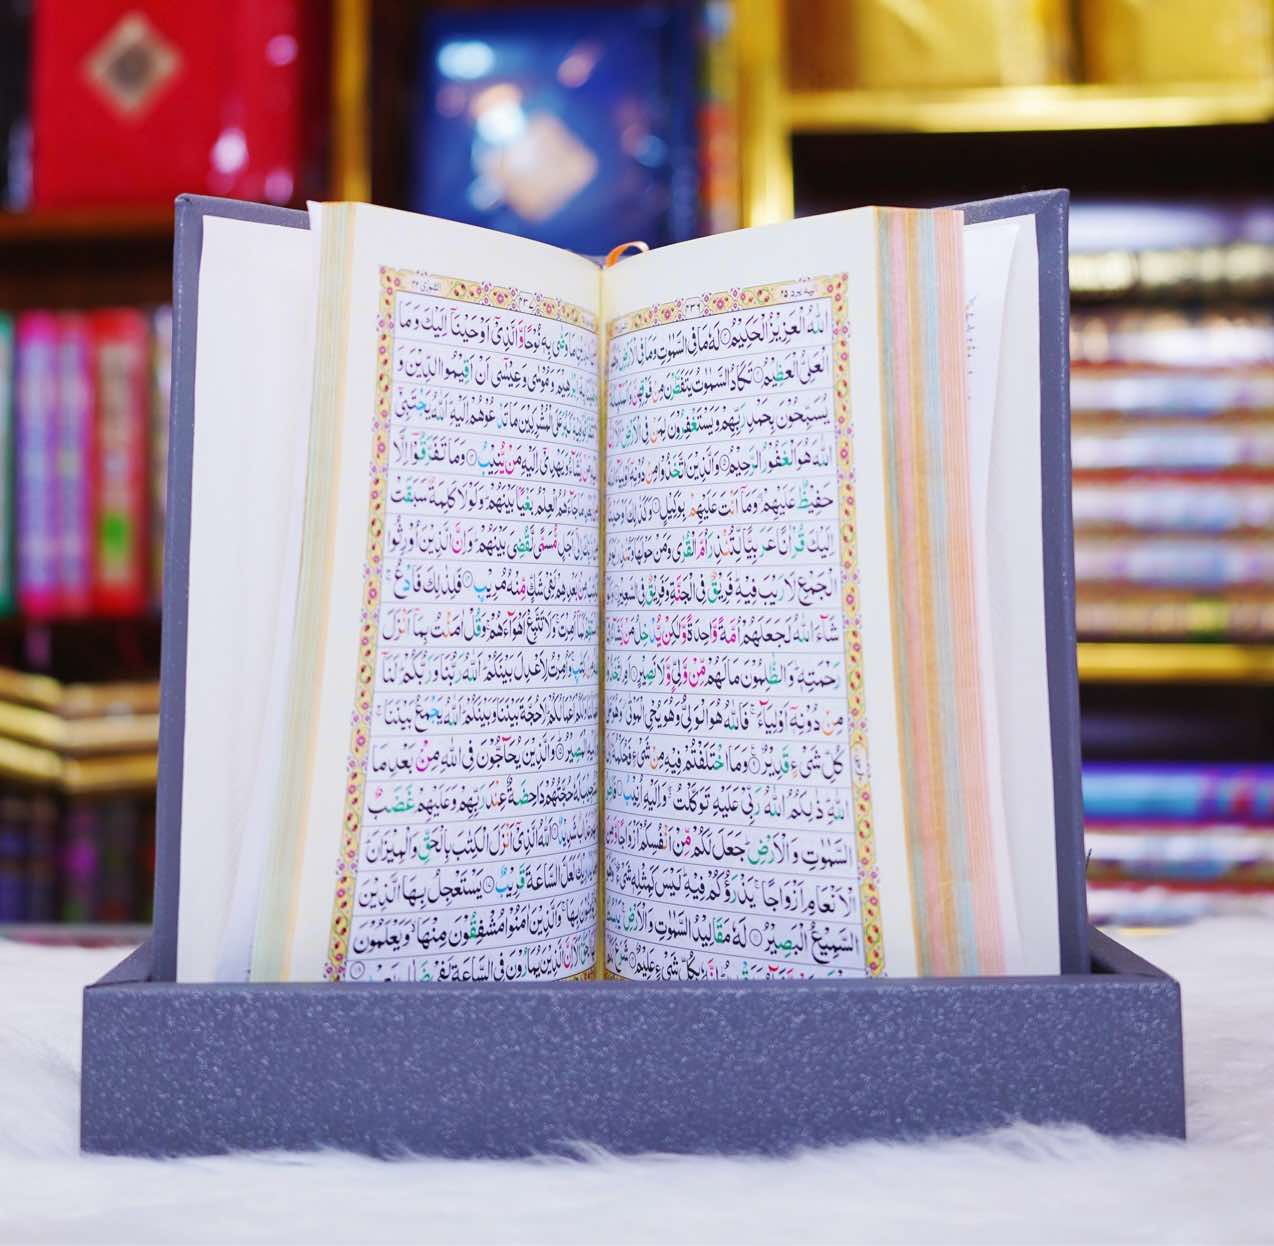 اليه يرد ٢٥
٤٣٦
اللّٰهُ الْعَزِيْزُ الْحَكِيْمُ۝ لَهٗ مَا فِى السَّمٰوٰتِ وَمَا فِى الْاَرْضِ
الْعَلِىُّ الْعَظِيْمُ۝ تَكَادُ السَّمٰوٰتُ يَتَفَطَّرْنَ مِنْ فَوْقِهِنَّ
يُسَبِّحُوْنَ بِحَمْدِ رَبِّهِمْ وَيَسْتَغْفِرُوْنَ لِمَنْ فِى الْاَرْضِ
اللّٰهَ هُوَ الْغَفُوْرُ الرَّحِيْمُ۝ وَالَّذِيْنَ اتَّخَذُوْا مِنْ دُوْنِهٖۤ اَوْلِيَآءَ
حَفِيْظٌ عَلَيْهِمْ ۖ وَمَاۤ اَنْتَ عَلَيْهِمْ بِوَكِيْلٍ۝ وَكَذٰلِكَ اَوْحَيْنَاۤ
اِلَيْكَ قُرْاٰنًا عَرَبِيًّا لِّتُنْذِرَ اُمَّ الْقُرٰى وَمَنْ حَوْلَهَا وَتُنْذِرَ يَوْمَ
الْجَمْعِ لَا رَيْبَ فِيْهِ ؕ فَرِيْقٌ فِى الْجَنَّةِ وَفَرِيْقٌ فِى السَّعِيْرِ۝
شَآءَ اللّٰهُ لَجَعَلَهُمْ اُمَّةً وَّاحِدَةً وَّلٰكِنْ يُّدْخِلُ مَنْ يَّشَآءُ
رَحْمَتِهٖ ؕ وَالظّٰلِمُوْنَ مَا لَهُمْ مِّنْ وَّلِىٍّ وَّلَا نَصِيْرٍ۝ اَمِ اتَّخَذُوْا
مِنْ دُوْنِهٖۤ اَوْلِيَآءَ ۚ فَاللّٰهُ هُوَ الْوَلِىُّ وَهُوَ يُحْىِ الْمَوْتٰى وَهُوَ
كُلِّ شَىْءٍ قَدِيْرٌ۝ وَمَا اخْتَلَفْتُمْ فِيْهِ مِنْ شَىْءٍ فَحُكْمُهٗۤ
اللّٰهِ ؕ ذٰلِكُمُ اللّٰهُ رَبِّىْ عَلَيْهِ تَوَكَّلْتُ ۖ وَاِلَيْهِ اُنِيْبُ۝
السَّمٰوٰتِ وَالْاَرْضِ ؕ جَعَلَ لَكُمْ مِّنْ اَنْفُسِكُمْ اَزْوَاجًا وَّمِنَ
الْاَنْعَامِ اَزْوَاجًا ۚ يَذْرَؤُكُمْ فِيْهِ ؕ لَيْسَ كَمِثْلِهٖ شَىْءٌ ۚ وَهُوَ
السَّمِيْعُ الْبَصِيْرُ۝ لَهٗ مَقَالِيْدُ السَّمٰوٰتِ وَالْاَرْضِ ۚ يَبْسُطُ
يَشَآءُ وَيَقْدِرُ ؕ اِنَّهٗ بِكُلِّ شَىْءٍ عَلِيْمٌ۝ شَرَعَ
٤٣٧
الشورى ٤٢
مَا وَصّٰى بِهٖ نُوْحًا وَّالَّذِىْۤ اَوْحَيْنَاۤ اِلَيْكَ وَمَا
اِبْرٰهِيْمَ وَمُوْسٰى وَعِيْسٰۤى اَنْ اَقِيْمُوا الدِّيْنَ وَ
كَبُرَ عَلَى الْمُشْرِكِيْنَ مَا تَدْعُوْهُمْ اِلَيْهِ ؕ اَللّٰهُ يَجْتَبِىْۤ
يَّشَآءُ وَيَهْدِىْۤ اِلَيْهِ مَنْ يُّنِيْبُ۝ وَمَا تَفَرَّقُوْۤا اِلَّا
مَا جَآءَهُمُ الْعِلْمُ بَغْيًاۢ بَيْنَهُمْ ؕ وَلَوْلَا كَلِمَةٌ سَبَقَتْ
اِلٰٓى اَجَلٍ مُّسَمًّى لَّقُضِىَ بَيْنَهُمْ ؕ وَاِنَّ الَّذِيْنَ اُوْرِثُوا
مِنْۢ بَعْدِهِمْ لَفِىْ شَكٍّ مِّنْهُ مُرِيْبٍ۝ فَلِذٰلِكَ فَادْعُ ۚ
كَمَاۤ اُمِرْتَ ۚ وَلَا تَتَّبِعْ اَهْوَآءَهُمْ ۚ وَقُلْ اٰمَنْتُ بِمَاۤ اَنْزَلَ
كِتٰبٍ ۚ وَاُمِرْتُ لِاَعْدِلَ بَيْنَكُمْ ؕ اَللّٰهُ رَبُّنَا وَرَبُّكُمْ ؕ لَنَاۤ
وَلَكُمْ اَعْمَالُكُمْ ؕ لَا حُجَّةَ بَيْنَنَا وَبَيْنَكُمْ ؕ اَللّٰهُ يَجْمَعُ بَيْنَنَا ۚ
الْمَصِيْرُ۝ وَالَّذِيْنَ يُحَآجُّوْنَ فِى اللّٰهِ مِنْۢ بَعْدِ مَا
لَهٗ حُجَّتُهُمْ دَاحِضَةٌ عِنْدَ رَبِّهِمْ وَعَلَيْهِمْ غَضَبٌ
شَدِيْدٌ۝ اَللّٰهُ الَّذِىْۤ اَنْزَلَ الْكِتٰبَ بِالْحَقِّ وَالْمِيْزَانَ ؕ
لَعَلَّ السَّاعَةَ قَرِيْبٌ۝ يَسْتَعْجِلُ بِهَا الَّذِيْنَ
يُؤْمِنُوْنَ بِهَا ۚ وَالَّذِيْنَ اٰمَنُوْا مُشْفِقُوْنَ مِنْهَا ۙ وَيَعْلَمُوْنَ
اَلَاۤ اِنَّ الَّذِيْنَ يُمَارُوْنَ فِى السَّاعَةِ لَفِىْ ضَلٰلٍۢ